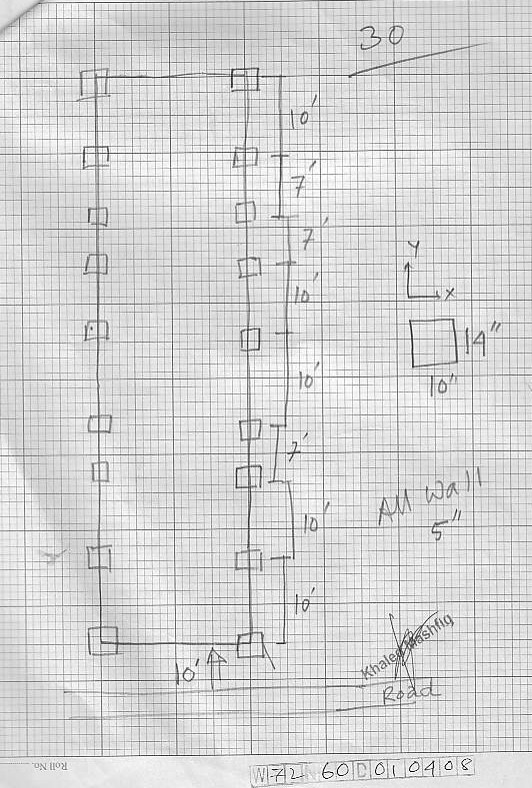 30
10'
7'
7'
10'
10'
7'
10'
10'
Y
X
14"
10"
All Wall
5"
10'
Khaled Mashfiq
Road
Roll No.
W 72 60 D 01 0408